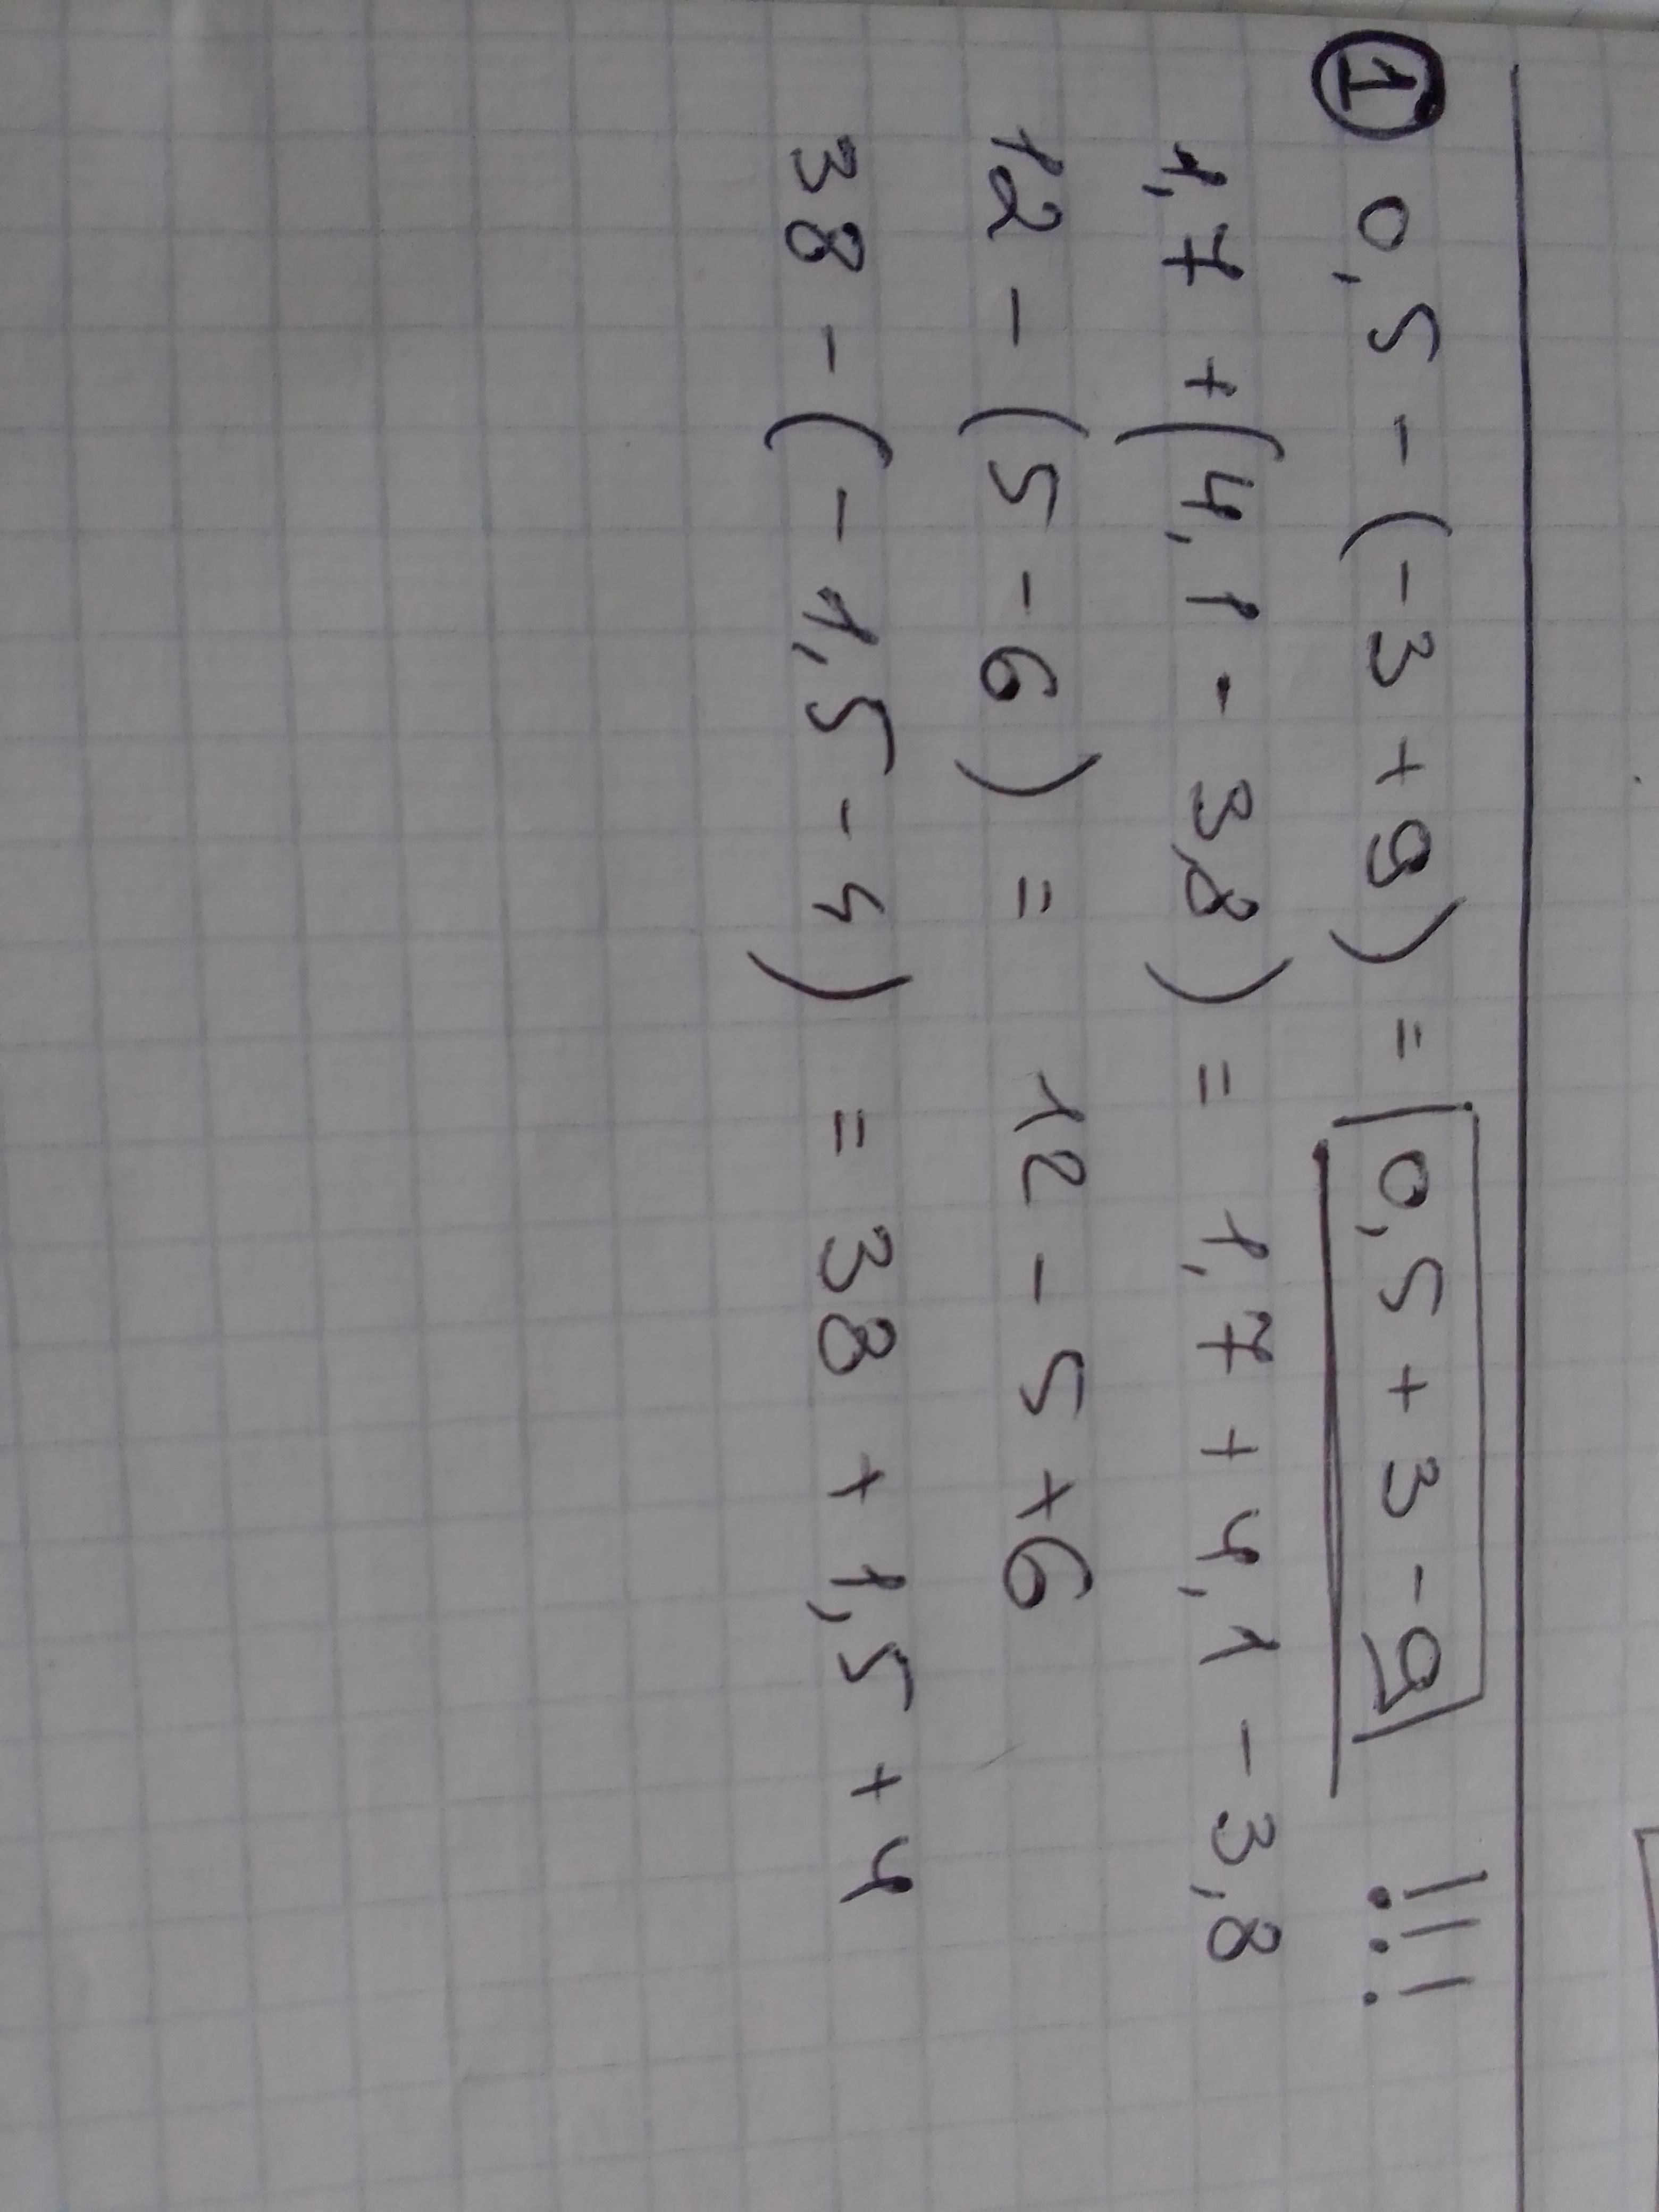 1 0,5 - (-3 + 9) = 0,5 + 3 - 9 !!!
1,7 + (4,1 - 3,8) = 1,7 + 4,1 - 3,8
12 - (5 - 6) = 12 - 5 + 6
38 - (- 1,5 - 4) = 38 + 1,5 + 4